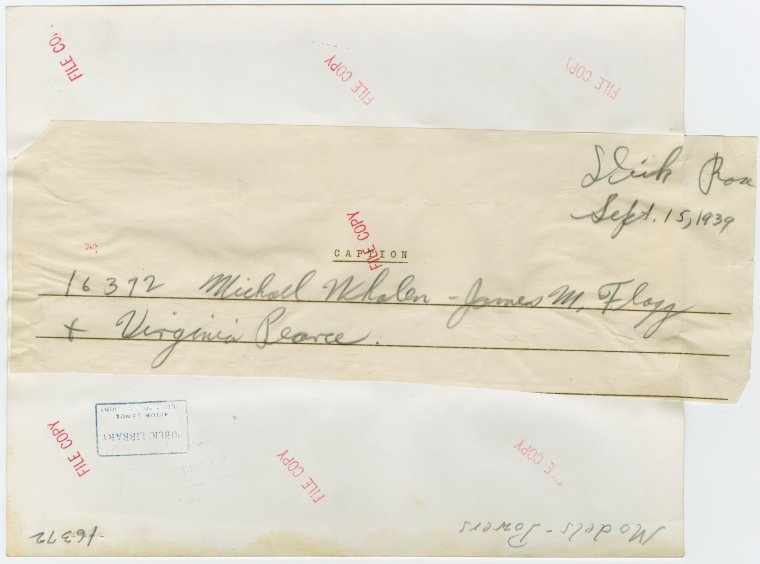 FILE CO
FILE COPY
FILE COPY
Dick Rose
Sept. 15, 1939
FILE COPY
CAPTION
16372 Michael Whalen - James M. Flagg
+ Virginia Pearce.
FILE COPY
PUBLIC LIBRARY
ASTOR LENOX
FILE COPY
E COPY
Models - Powers
16372